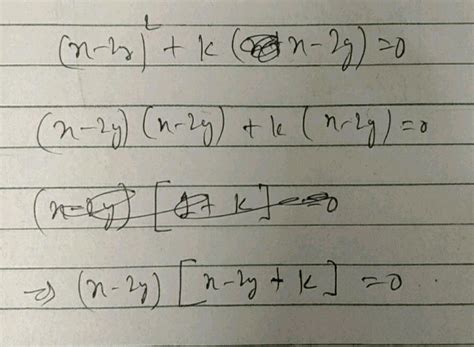 (x-2y)² + k (x-2y) = 0
(x-2y) (x-2y) + k (x-2y) = 0
(x-2y) [1+ k] = 0
⇒ (x-2y) [x-2y + k] = 0